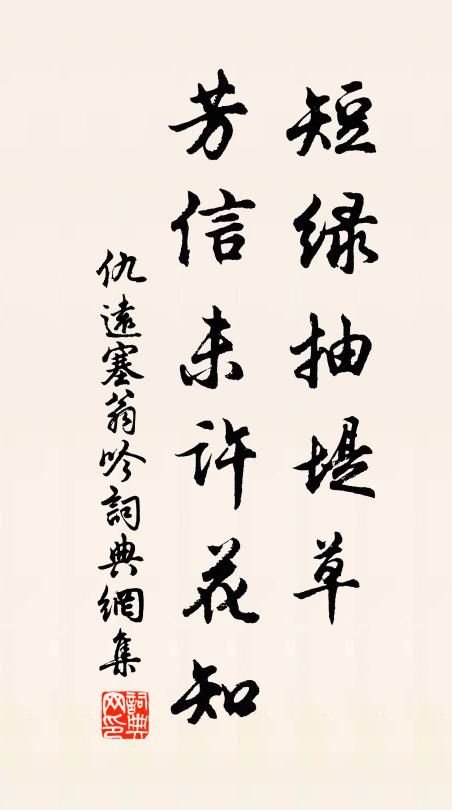 短绿抽堤草
芳信未许花知
仇遠塞翁吟詞典網集
詞典网印